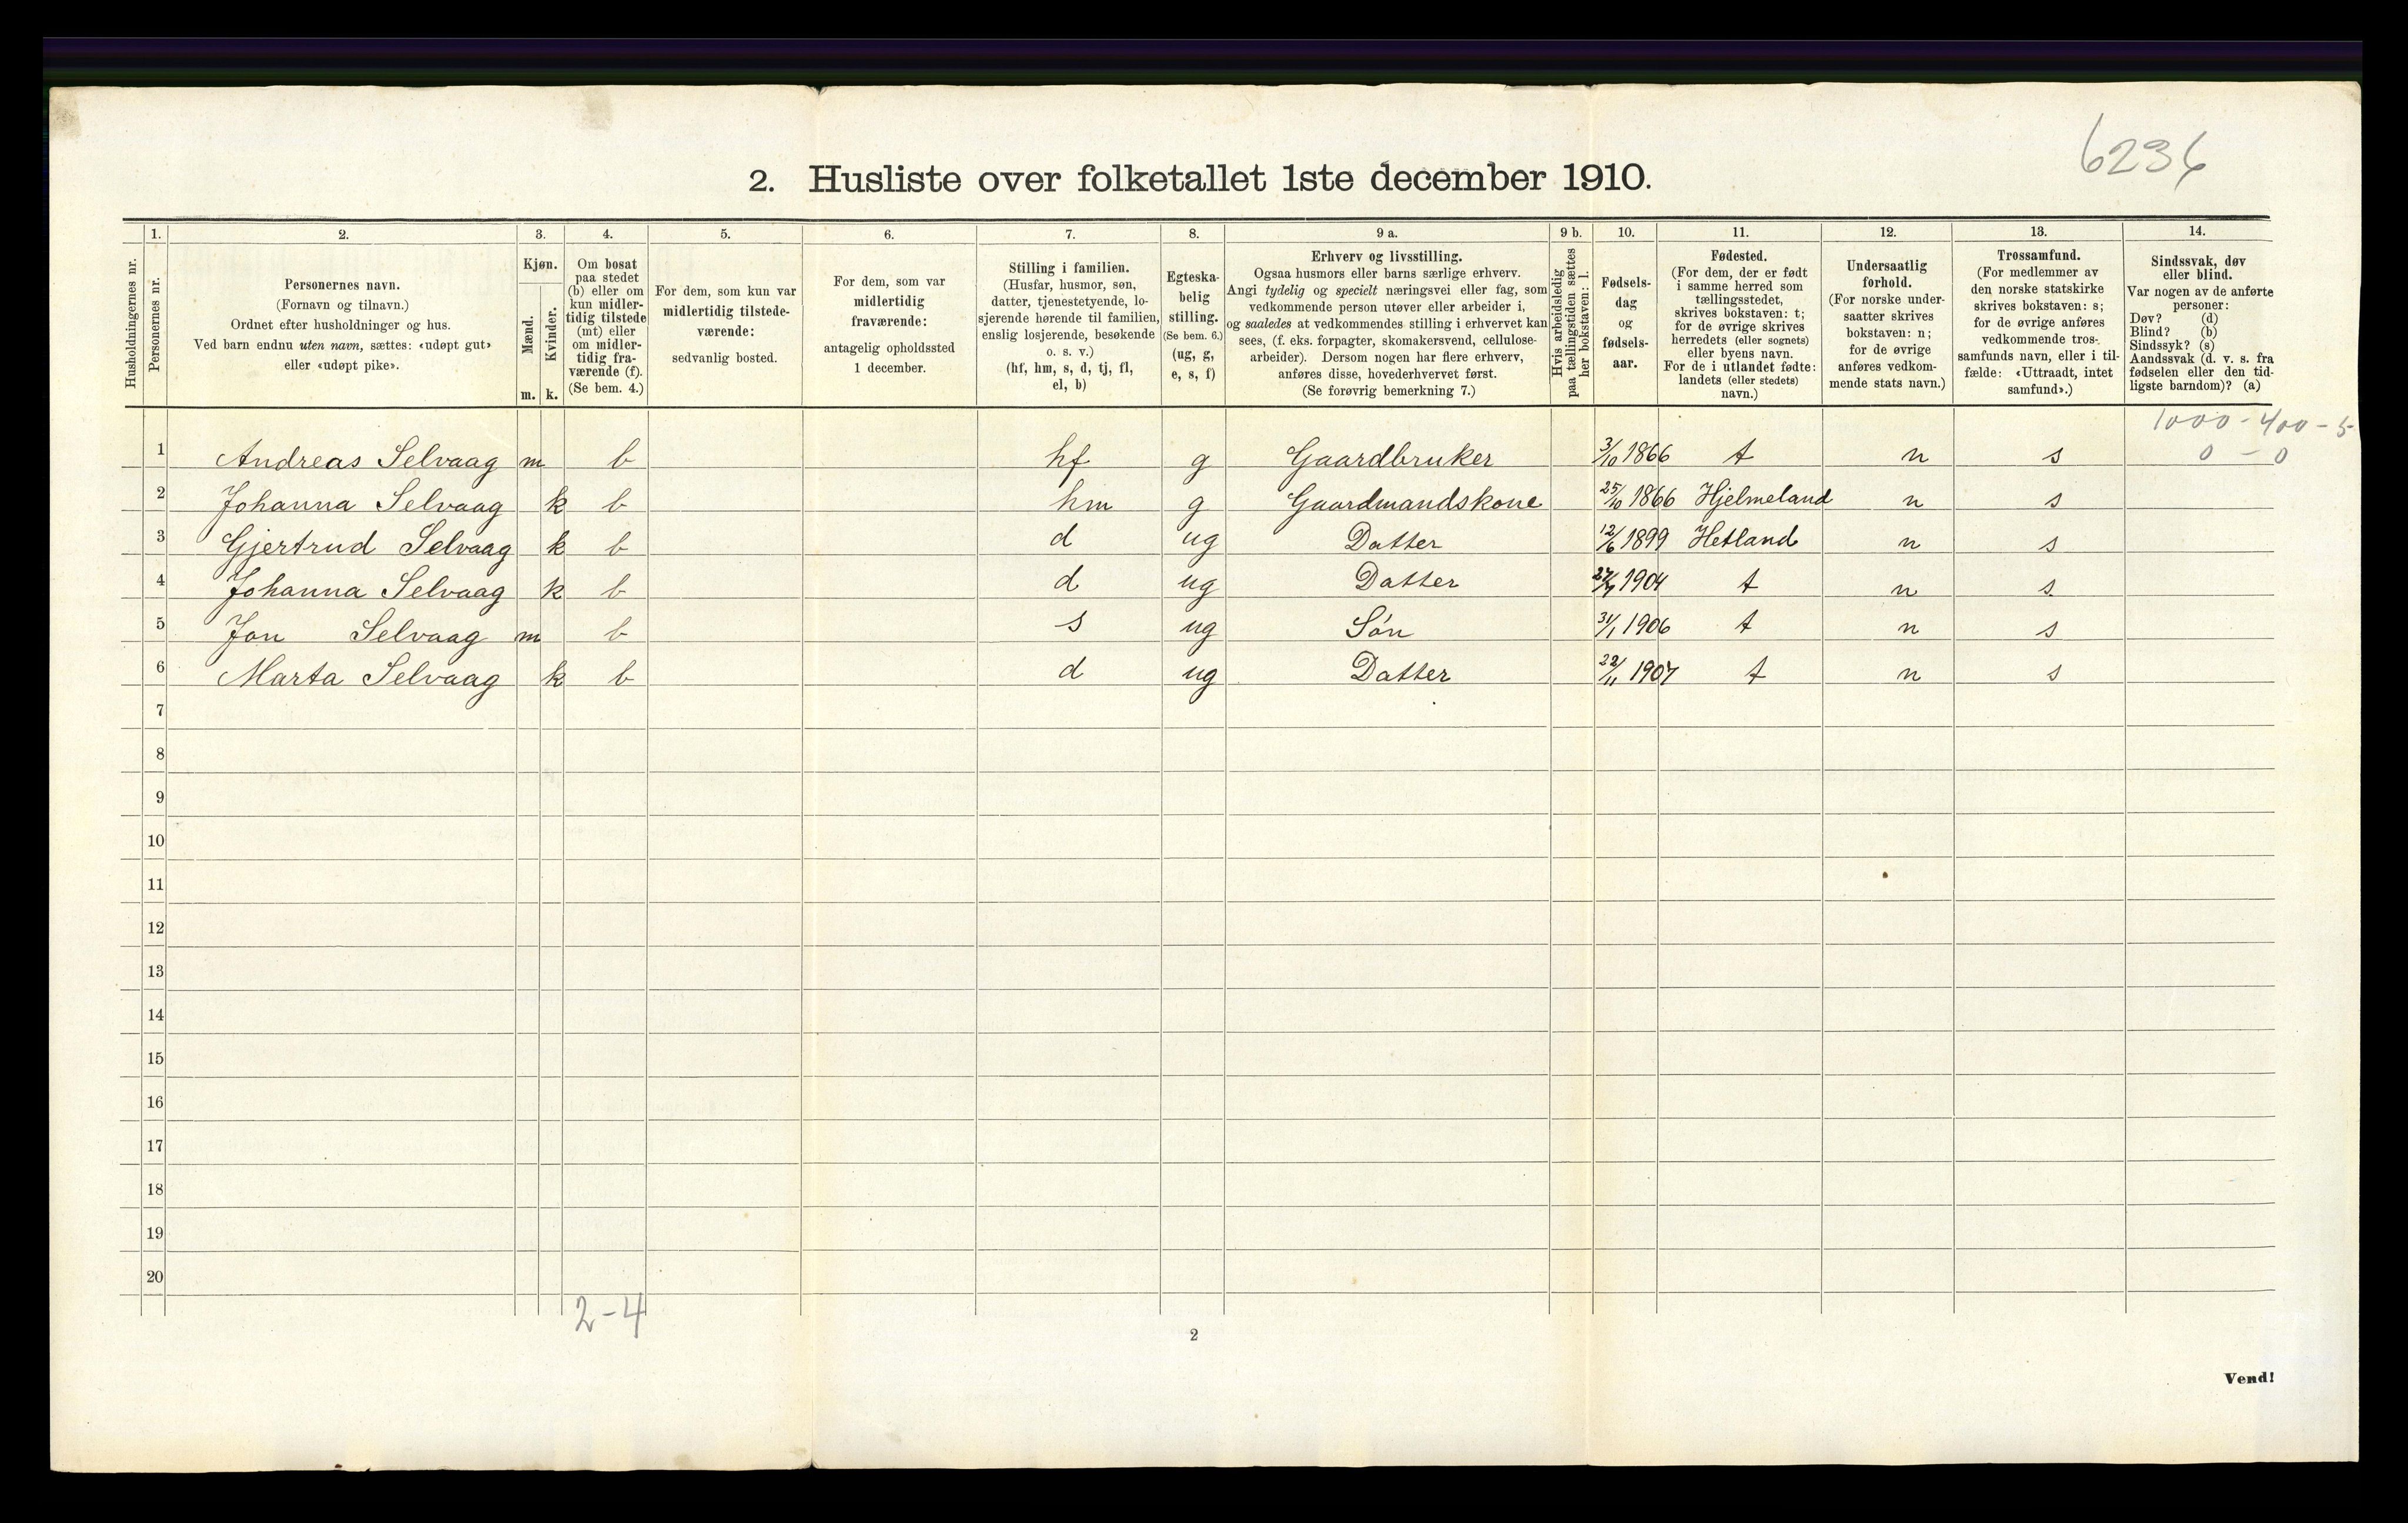 6236
2. Husliste over folketallet 1ste december 1910.
Husholdningernes nr.
1.
Personernes nr.
2.
Personernes navn.
(Fornavn og tilnavn.)
Ordnet efter husholdninger og hus.
Ved barn endnu uten navn, sættes: «udøpt gut»
eller «udøpt pike».
3.
Kjøn.
Mænd.
Kvinder.
m. k.
4.
Om bosat
paa stedet
(b) eller om
kun midler-
tidig tilstede
(mt) eller
om midler-
tidig fra-
værende (f).
(Se bem. 4.)
5.
For dem, som kun var
midlertidig tilstede-
værende:
sedvanlig bosted.
6.
For dem, som var
midlertidig
fraværende:
antagelig opholdssted
1 december.
7.
Stilling i familien.
(Husfar, husmor, søn,
datter, tjenestetyende, lo-
sjerende hørende til familien,
enslig losjerende, besøkende
o. s. v.)
(hf, hm, s, d, tj, fl,
el, b)
8.
Egteska-
belig
stilling.
(Se bem. 6.)
(ug, g,
e, s, f)
9 a.
Erhverv og livsstilling.
Ogsaa husmors eller barns særlige erhverv.
Angi tydelig og specielt næringsvei eller fag, som
vedkommende person utøver eller arbeider i,
og saaledes at vedkommendes stilling i erhvervet kan
sees, (f. eks. forpagter, skomakersvend, cellulose-
arbeider). Dersom nogen har flere erhverv,
anføres disse, hovederhvervet først.
(Se forøvrig bemerkning 7.)
9 b.
Hvis arbeidsledig
paa tællingstiden sættes
her bokstaven: l.
10.
Fødsels-
dag
og
fødsels-
aar.
11.
Fødested.
(For dem, der er født
i samme herred som
tællingsstedet,
skrives bokstaven: t;
for de øvrige skrives
herredets (eller sognets)
eller byens navn.
For de i utlandet fødte:
landets (eller stedets)
navn.)
12.
Undersaatlig
forhold.
(For norske under-
saatter skrives
bokstaven: n;
for de øvrige
anføres vedkom-
mende stats navn.)
13.
Trossamfund.
(For medlemmer av
den norske statskirke
skrives bokstaven: s;
for de øvrige anføres
vedkommende tros-
samfunds navn, eller i til-
fælde: «Uttraadt, intet
samfund».)
14.
Sindssvak, døv
eller blind.
Var nogen av de anførte
personer:
Døv? (d)
Blind? (b)
Sindssyk? (s)
Aandssvak (d. v. s. fra
fødselen eller den tid-
ligste barndom)? (a)
1000 - 400 - 5
0 - 0
1 Andreas Selvaag m b hf g Gaardbruker 3/10 1866 t n s
2 Johanna Selvaag k b hm g Gaardmandskone 25/10 1866 Hjelmeland n s
3 Gjertrud Selvaag k b d ug Datter 12/6 1899 Hetland n s
4 Johanna Selvaag k b d ug Datter 1904 t n s
5 Jon Selvaag m b s ug Søn 31/1 1906 t n s
6 Marta Selvaag k b d ug Datter 22/11 1907 t n s
7
8
9
10
11
12
13
14
15
16
17
18
19
20
2-4
2
Vend!